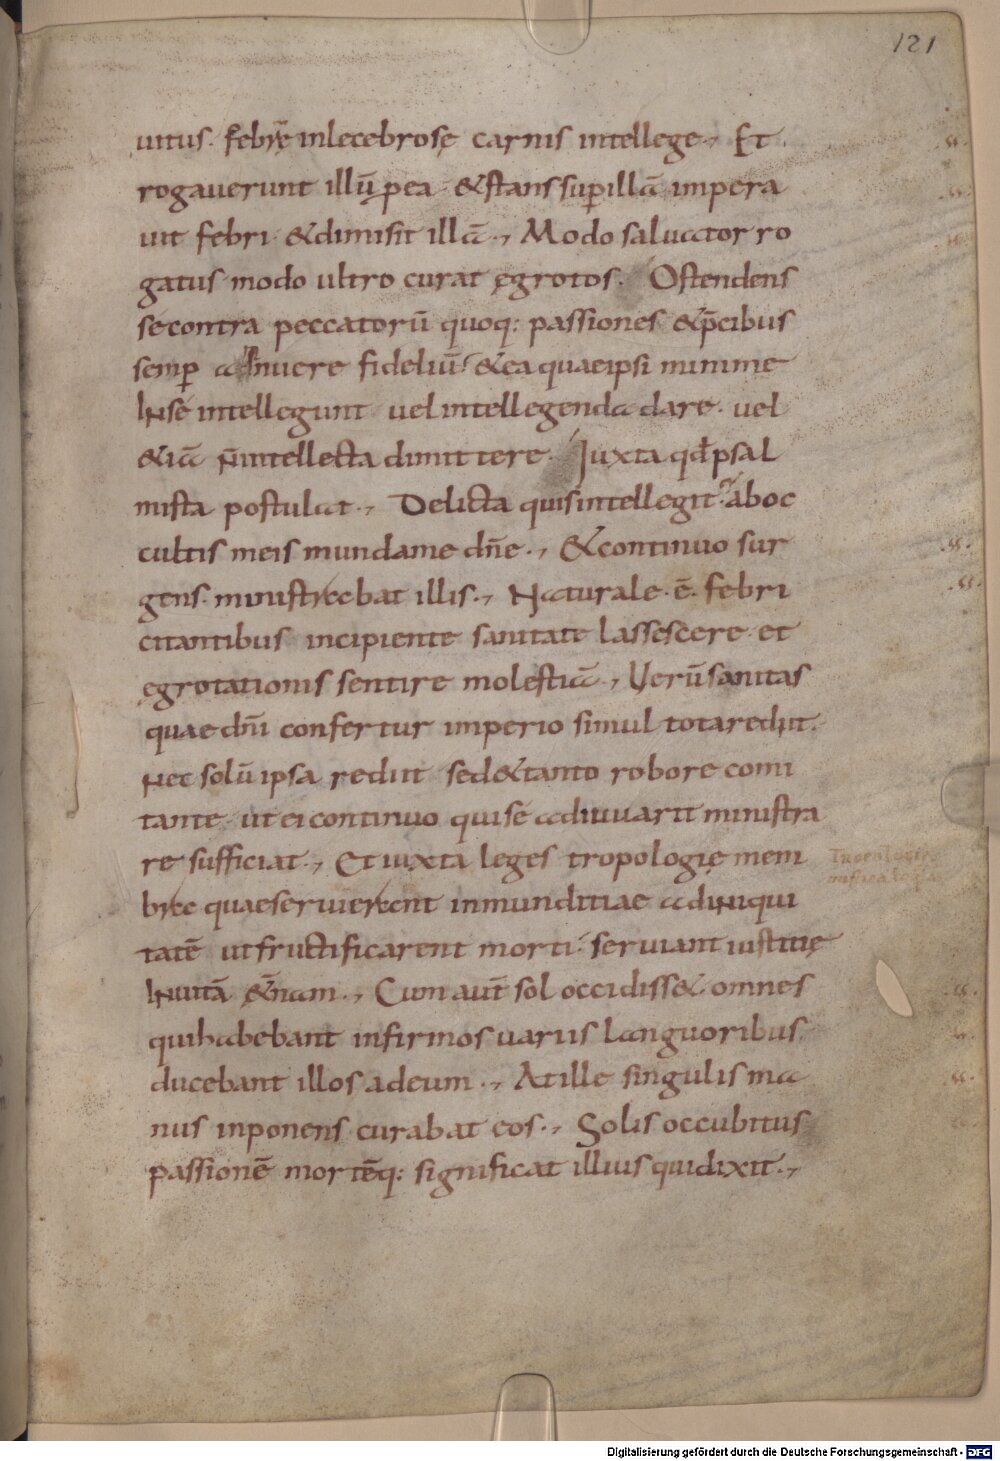 121
uitus. febrẽ inlecebrosę carnis intellege., Et
rogauerunt illū pea. & stans sup illā impera
uit febri. & dimisit illā., Modo saluator ro
gatus modo ultro curat ęgrotos. Ostendens
se contra peccatorū quoq: passiones & p̄cibus
semp annuere fideliū. & ea quae ipsi minime
in se intellegunt uel intellegenda dare. uel
& iā n̄ intellecta dimittere. Iuxta qđ psal
mista postulat., Delicta quis intellegit. ab oc
cultis meis munda me dn̄e., & continuo sur
gens. ministrabat illis., Naturale. ē. febri
citantibus incipiente sanitate lassescere. et
ęgrotationis sentire molestiā., Uerū sanitas
quae dn̄i confertur imperio simul tota rediit.
Nec solū ipsa rediit sed & tanto robore comi
tante. ut ei continuo qui se adiuuarit ministra
re sufficiat., Et iuxta leges tropologię mem
bra quae seruierant inmunditiae ad iniqui
tatē ut fructificarent morti. seruiant iustitię
In uitā &̄nam., Cum aut̄ sol occidiss&. omnes
qui habebant infirmos uariis languoribus.
ducebant illos ad eum., At ille singulis ma
nus inponens curabat eos., Solis occubitus
passionē mortēq: significat illius qui dixit.,
Digitalisierung gefördert durch die Deutsche Forschungsgemeinschaft - DFG